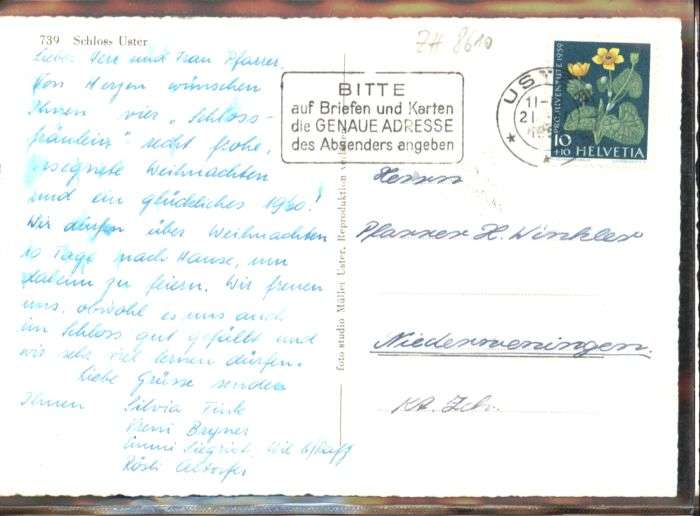 739 Schloss Uster
Lieber Herr und Frau Pfarrer,
Von Herzen wünschen
Ihnen vier "Schloss-
fräulein" recht frohe,
gesegnete Weihnachten
und ein glückliches 1960!
Wir dürfen über Weihnachten
10 Tage nach Hause, um
daheim zu feiern. Wir freuen
uns, obwohl es uns auch
im Schloss gut gefällt und
wir sehr viel lernen dürfen.
Liebe Grüsse senden
Ihnen Silvia
Vreni Bryner
Emmi Siegrist, Wil b/Rafz
Rösli Altorfer
foto studio Müller Uster. Reproduktion
ZH 8610
BITTE
auf Briefen und Karten
die GENAUE ADRESSE
des Absenders angeben
UST
11-
21.
PRO JUVENTUTE 1959
10
+10 HELVETIA
Herrn
Pfarrer H. Winkler
Niederweningen.
Kt. Zch.